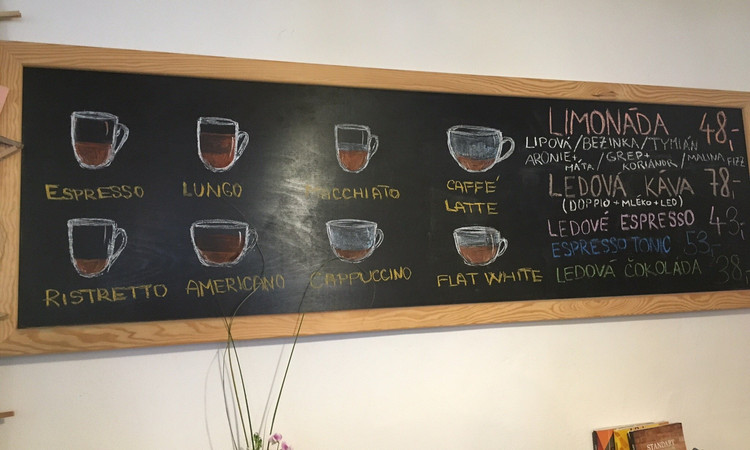 ESPRESSO
LUNGO
MACCHIATO
CAFFÉ
LATTE
RISTRETTO
AMERICANO
CAPPUCCINO
FLAT WHITE
LIMONÁDA 48,-
LIPOVÁ/BEZINKA/TYMIÁN
ARONIE+MÁTA/GREP+KORIANDR/MALINA FIZZ
LEDOVÁ KÁVA 78,-
(DOPPIO+MLÉKO+LED)
LEDOVÉ ESPRESSO 43,-
ESPRESSO TONIC 53,-
LEDOVÁ ČOKOLÁDA 38,-
STANDART